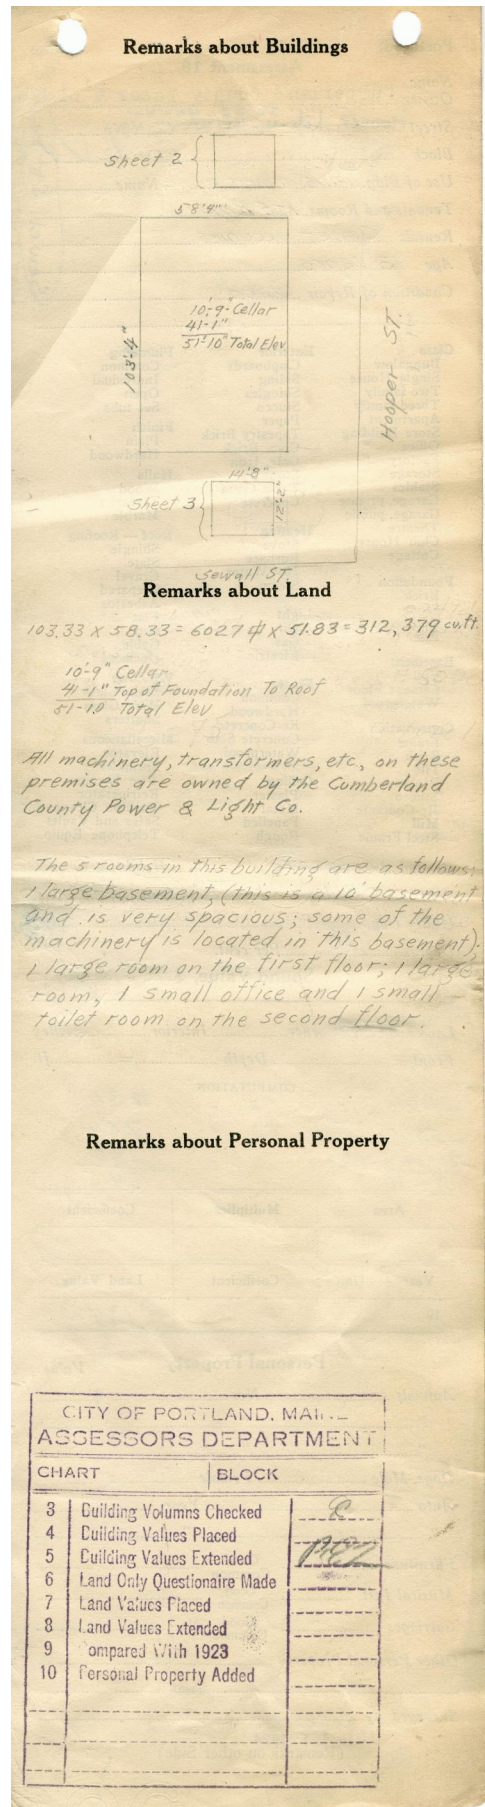 Remarks about Buildings
Sheet 2
58'4"
10'-9" Cellar
41-1"
51'-10" Total Elev
103'-4"
Hooper ST.
14'8"
12'-2"
Sheet 3
Sewall ST.
Remarks about Land
103.33 x 58.33 = 6027 ⌗ x 51.83 = 312,379 cu.ft.
10'-9" Cellar
41-1" Top of Foundation To Roof
51-10 Total Elev
All machinery, transformers, etc., on these
premises are owned by the Cumberland
County Power & Light Co.
The 5 rooms in this building are as follows:
1 large basement, (this is a 10' basement
and is very spacious; some of the
machinery is located in this basement);
1 large room on the first floor; 1 large
room, 1 small office and 1 small
toilet room on the second floor.
Remarks about Personal Property
CITY OF PORTLAND, MAI
ASSESSORS DEPARTMENT
CHART BLOCK
3 Building Volumns Checked
4 Building Values Placed
5 Building Values Extended
6 Land Only Questionaire Made
7 Land Values Placed
8 Land Values Extended
9 ompared With 1923
10 Personal Property Added